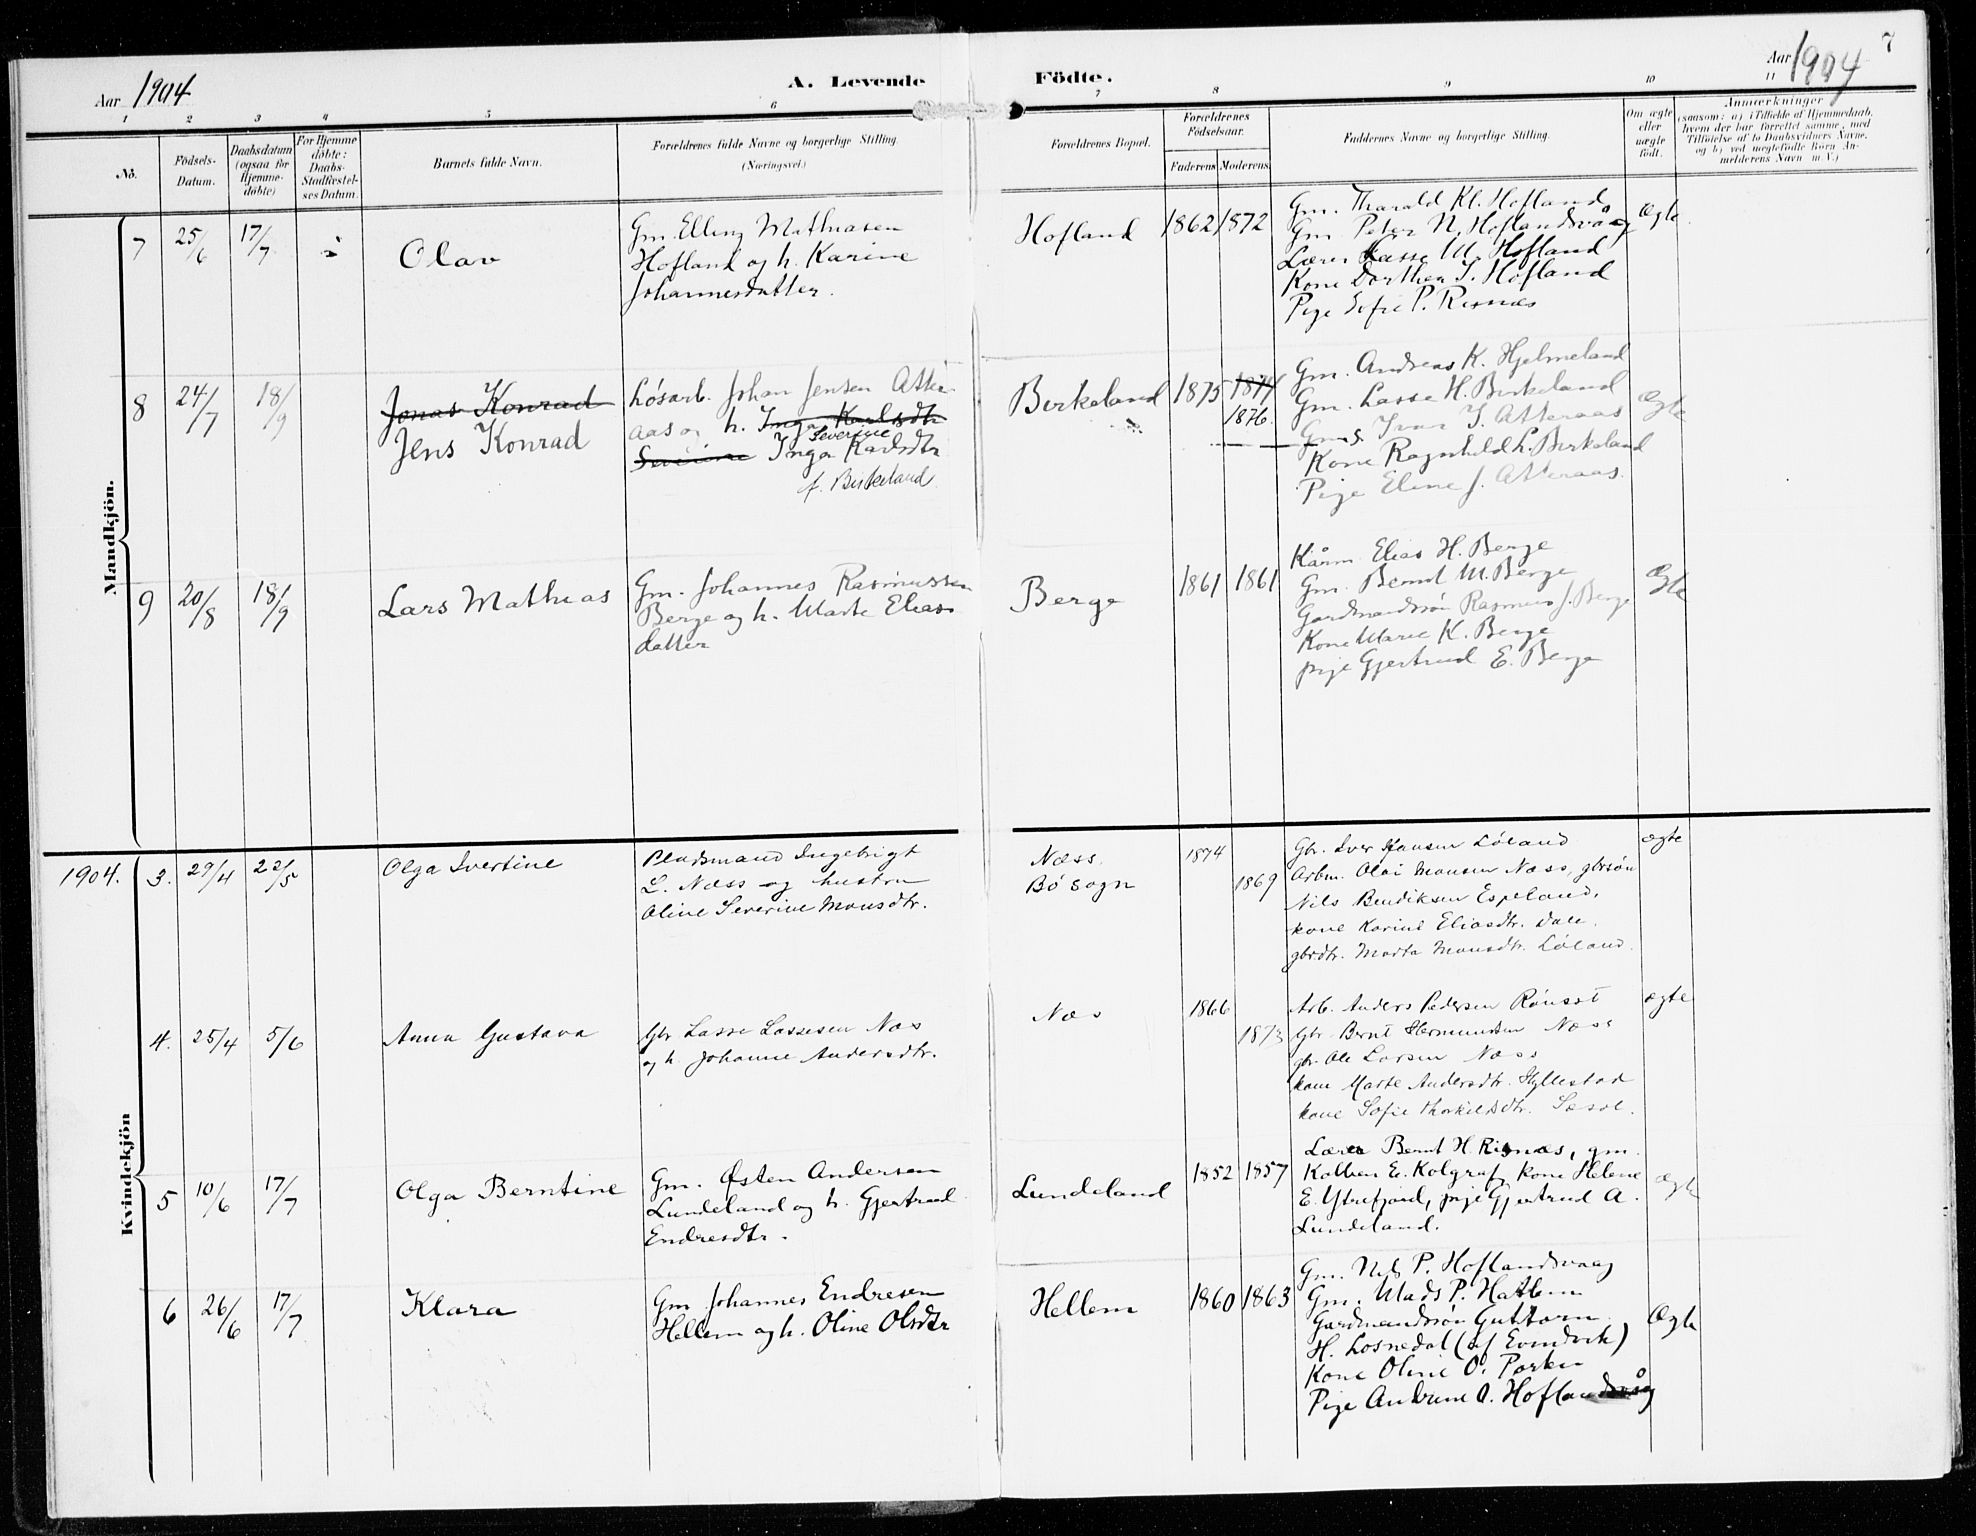 7
Aar 1904
A. Levende
Födte.
Aar 1904
1 2 3 4 5 6 7 8 9 10 11
No.
Födsels-
Datum.
Daabsdatum
(ogsaa for
Hjemme-
döbte)
For Hjemme
döbte:
Daabs-
Stadfæstel-
ses Datum.
Barnets fulde Navn.
Forældrenes fulde Navne og borgerlige Stilling.
(Næringsvei.)
Forældrenes Bopæl.
Forældrenes
Födselsaar.
Faderens Moderens
Faddernes Navne og borgerlige Stilling.
Om ægte
eller
uægte
födt.
Anmærkninger
(saasom: a) i Tilfælde af Hjemmedaab,
hvem der har forrettet samme, med
Tilföielse af to Daabsvidners Navne,
og b) ved uægtefödte Börn An-
melderens Navn m. V.)
Mandkjön.
7
25/6
17/7
Olav
Gm. Elling Mathiasen
Hofland og h. Karine
Johannesdatter.
Hofland
1862 1872
Gm. Tharald Kl. Hofland
Gm Peter N. Hoflandsvåg
Lærer Lasse M. Hofland
Kone Dorthea I. Hofland
Pige Sofie P. Risnæs
Ægte
8
24/7
18/9
Jonas Konrad
Jens Konrad
Løsarb. Johan Jensen Atter-
aas og h. Inga Karlsdtr
Severine
Severine Inga Karlsdtr
f. Birkeland
Birkeland
1875 1874
1876
Gm. Andreas K. Hjelmeland
Gm. Lasse H. Birkeland
Gms. Ivar J. Atteraas
Kone Ragnhild L. Birkeland
Pige Eline J. Atteraas.
Ægte
9
20/8
18/9
Lars Mathias
Gm. Johannes Rasmussen
Berge og h. Marte Elias
datter
Berge
1861 1861
Kårm. Elias H. Berge
Gm. Bernt M. Berge
Gardmandssøn Rasmus J. Berge
Kone Marie K. Berge
pige Gjertrud E. Berge
Ægte
Kvindekjön
1904. 3. 29/4 22/5
Olga Ivertine
Pladsmand Ingebrigt
L. Næss og hustru
Oline Severine Monsdtr.
Næss.
Bø sogn
1874
1869
Gbr. Iver Hansen Løland
Arbm. Olai Monsen Næss, gbrsøn
Nils Bendiksen Espeland,
kone Karine Eliasdtr. Dale.
gbrdtr. Marta Monsdtr. Løland.
ægte
4. 25/4 5/6
Anna Gustava
Gbr Lasse Lassesen Næs
og h. Johanne Andersdtr.
Næs
1866
1873
Arb. Anders Pedersen
Gbr. Bernt Hermundsen Næss
gbr. Ole Larsen Næss
kone Marte Andersdtr. Hyllestad
kone Sofie Thorkildsdtr.
ægte
5 10/6 17/7
Olga Berntine
Gm. Østen Andersen
Lundeland og h. Gjertrud
Endresdtr.
Lundeland
1852 1857
Lærer Bernt H. Risnæs, gm.
E. Kolgraf, kone Helene
E. Ytrefjord, pige Gjertrud A.
Lundeland.
ægte
6 26/6 17/7
Klara
Gm Johannes Endresen
Hellem og h. Oline Olsdtr
Hellem
1860 1863
Gm. Nils P. Hoflandsvaag
Gm. Mads P. Hatlem
Gardmandssøn Guttorm
H. Losnedal (af Evindvik)
Kone Oline O.
Pige Andrine O. Hoflandsvåg
Ægte